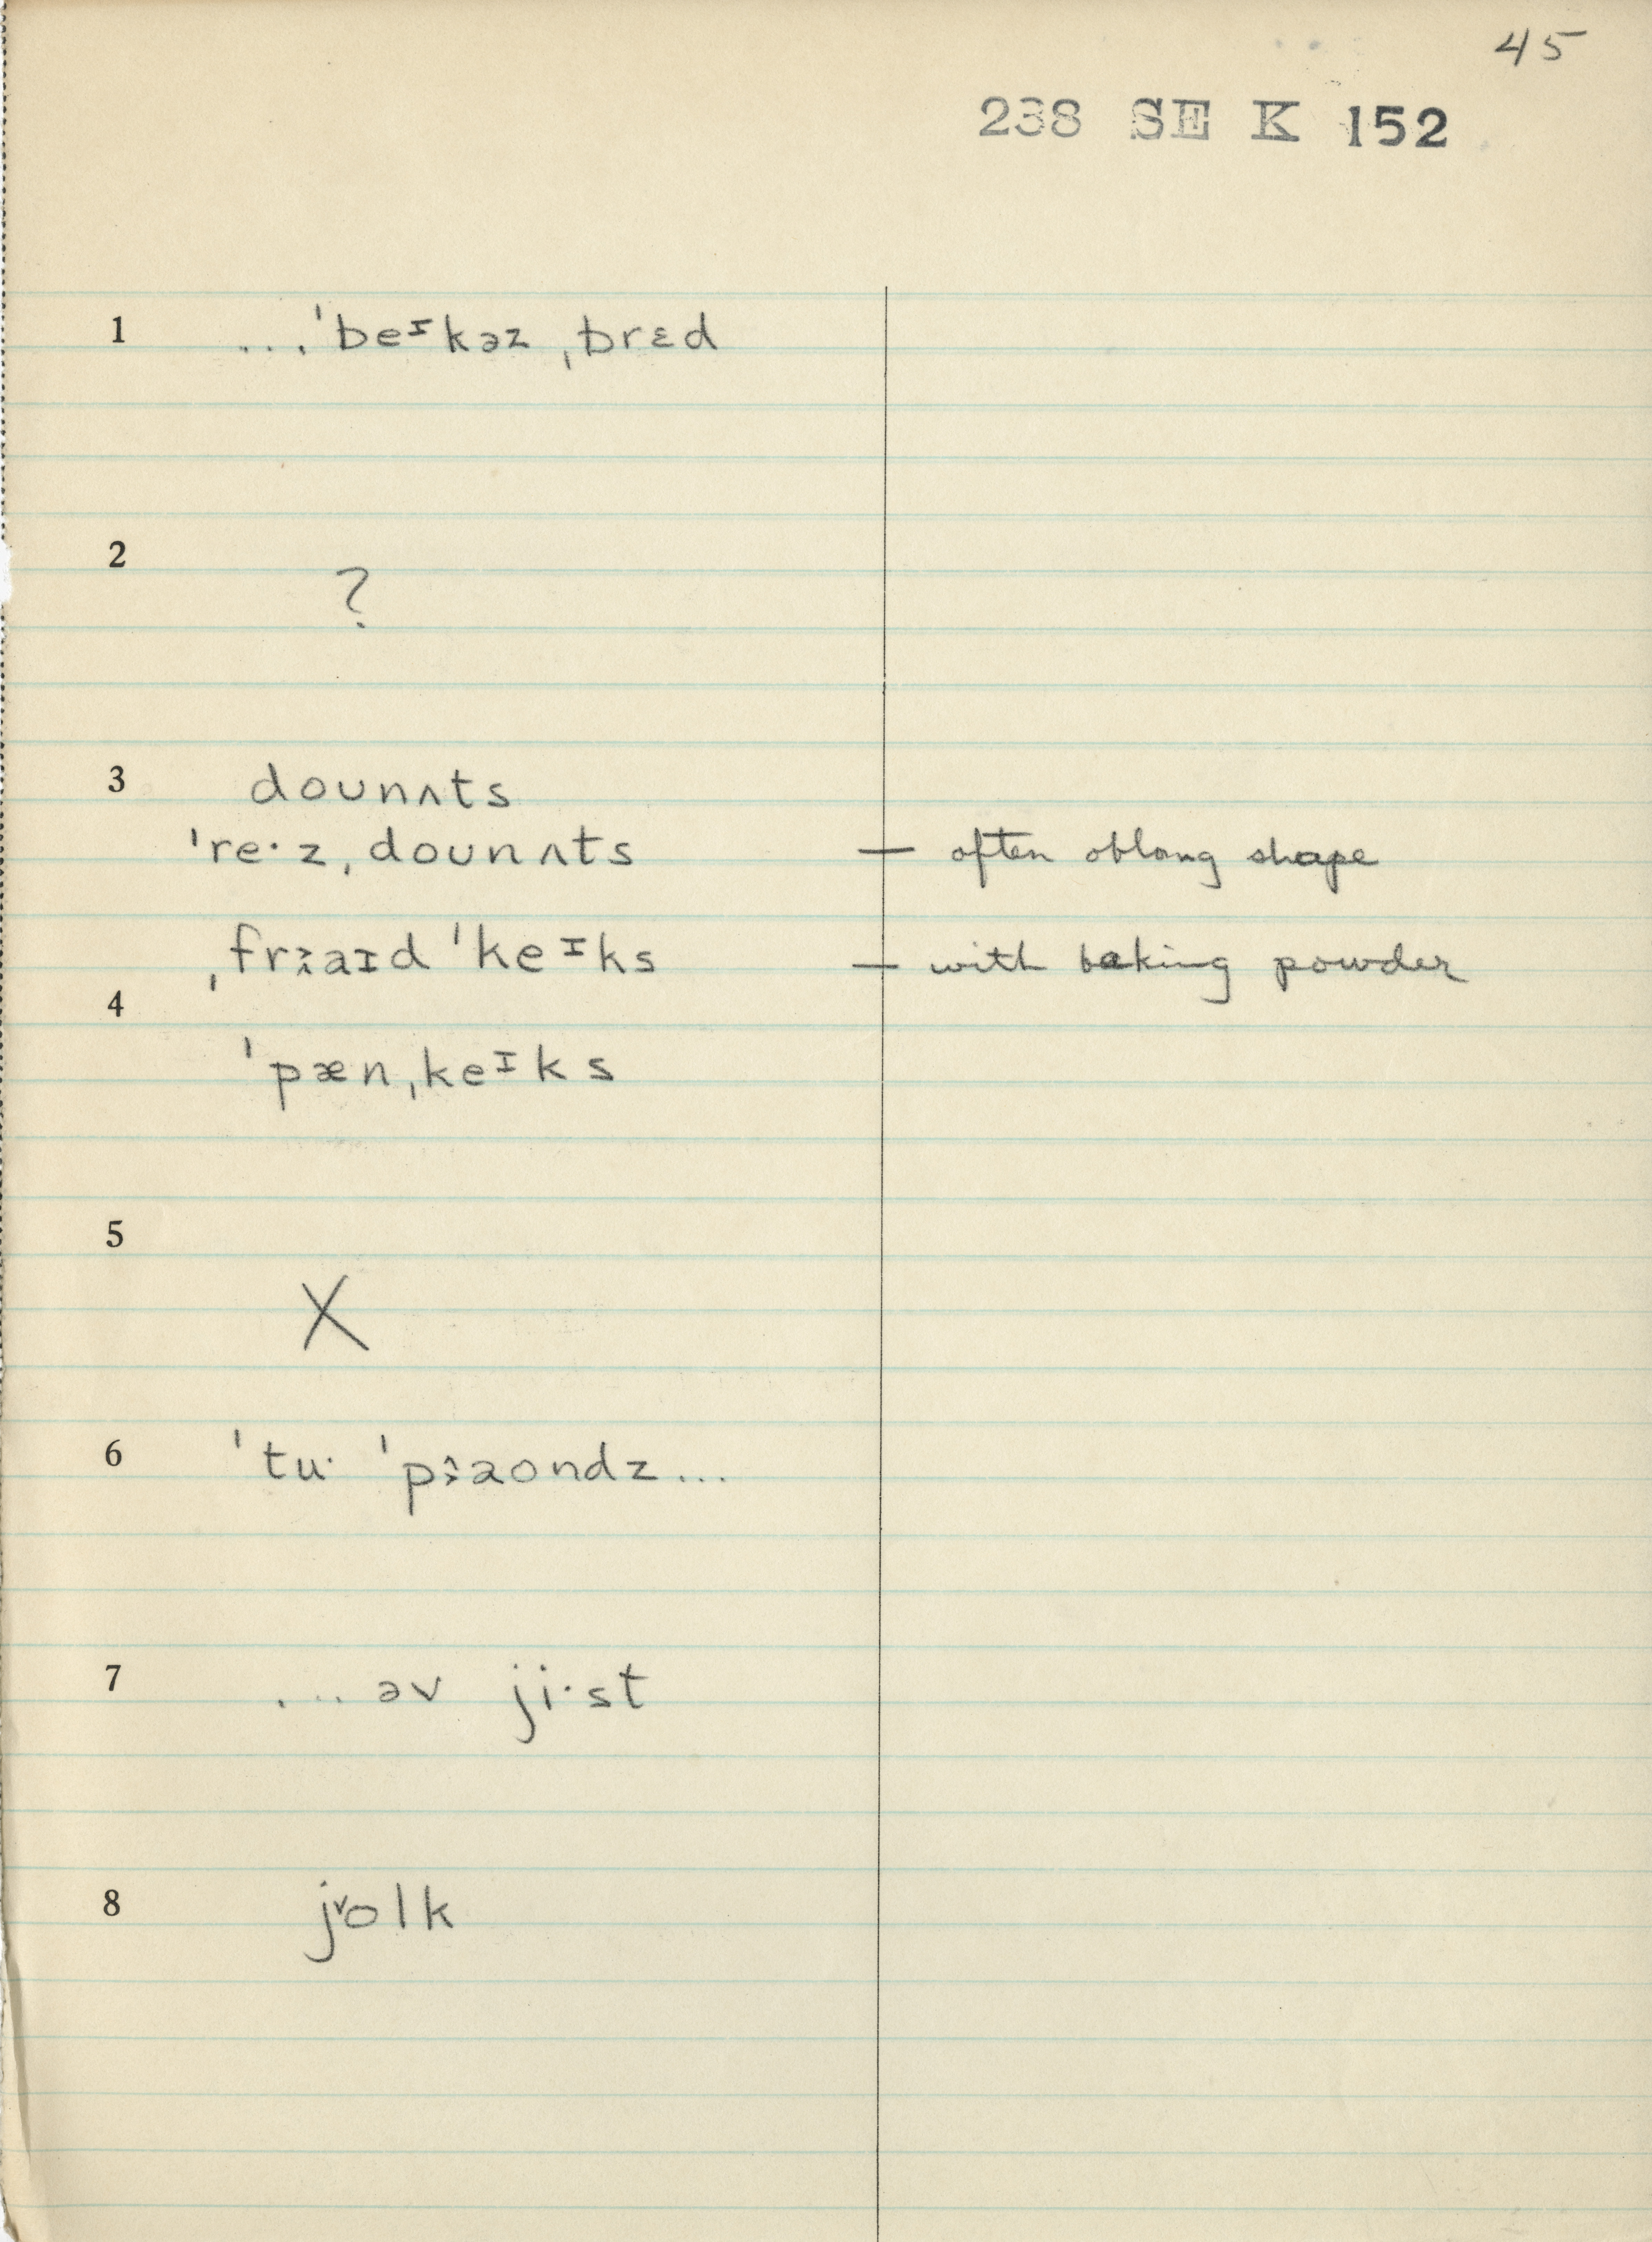 45
238 SE K 152
1 ...ˈbeᶦkəz ˌbrɛd
2 ?
3 dounʌts
ˈre·z ˌdounʌts — often oblong shape
ˌfrɜaɪd ˈkeᶦks — with baking powder
4
ˈpæn ˌkeᶦks
5
X
6 ˈtu· ˈpɜaondz...
7 ... əv ji·st
8 jolk